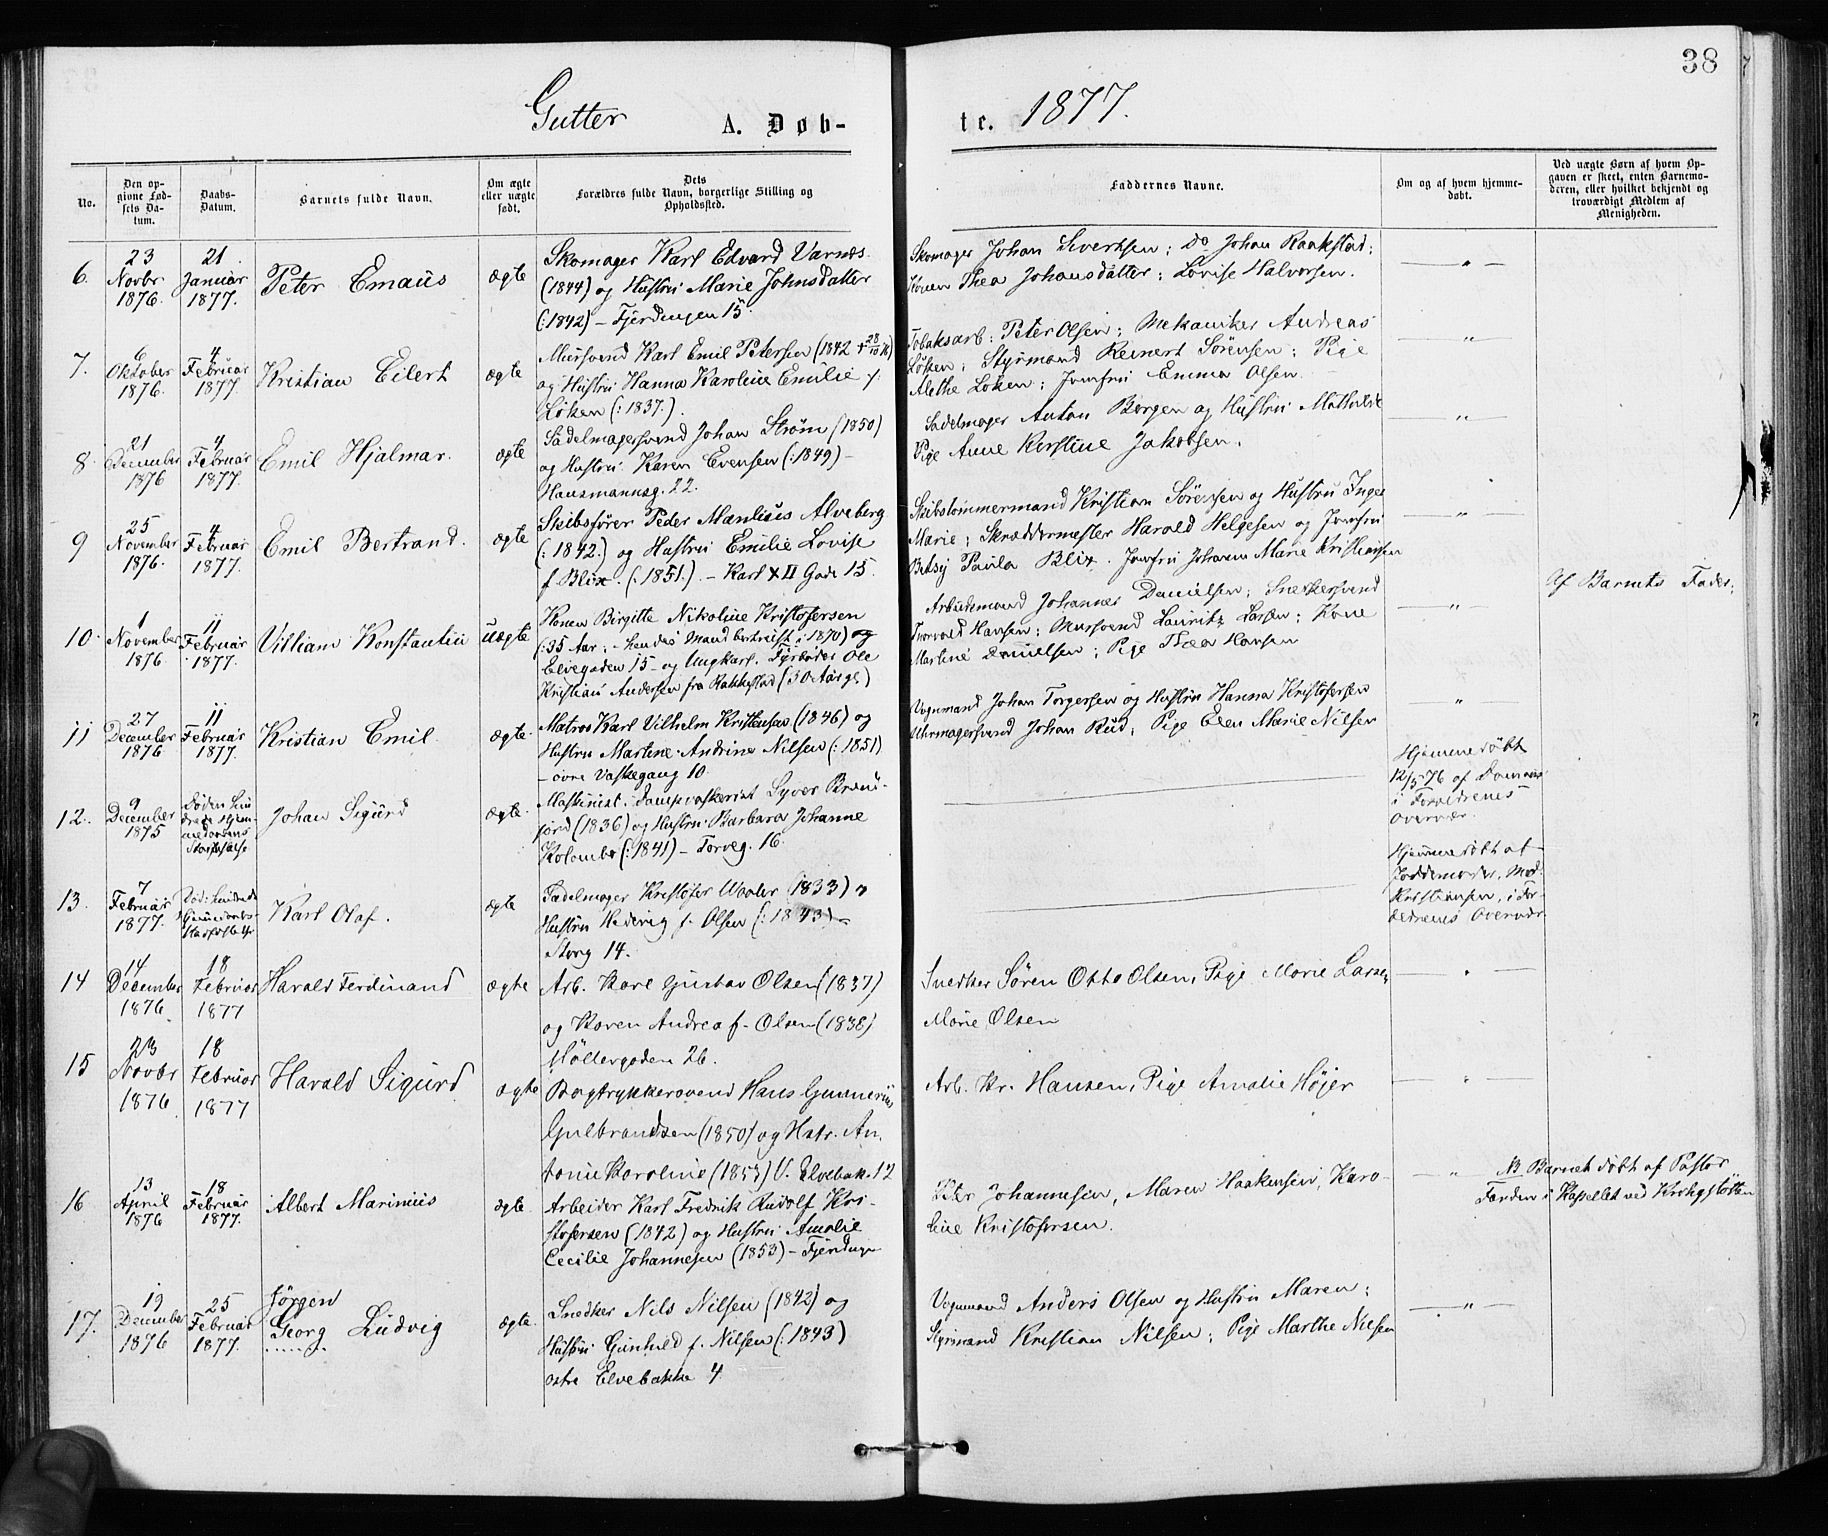 38
Gutter A. Døb-
te. 1877.
No.
Den op-
givne Fød-
sels Da-
tum.
Daabs-
Datum.
Barnets fulde Navn.
Om ægte
eller uægte
født.
Dets
Forældres fulde Navn, borgerlige Stilling og
Opholdssted.
Faddernes Navne.
Om og af hvem hjemme-
døbt.
Ved uægte Børn af hvem Op-
gaven er skeet, enten Barnemo-
deren, eller hvilket bekjendt og
troværdigt Medlem af
Menigheden.
6.
23
Novbr
1876.
21
Januar
1877.
Peter Emaus
ægte
Skomager Karl Edvard Varnæs
(1844) og Hustru Marie Johnsdatter
(:1842) – Fjerdingen 15.
Skomager Johan Sivertsen; Do Johan Raakstad;
Konen Thea Johansdatter; Lovise Halvorsen.
— " —
7.
6
Oktober
1876.
4
Februar
1877.
Kristian Eilert
ægte
Mursvend Karl Emil Petersen (1842 + 28/10 76)
og Hustru Hanna Karoline Emilie f.
Löken (:1837.).
Tobaksarb: Peter Olsen; Mekaniker Andreas
Löken; Styrmand Reinert Sörensen; Pige
Alethe Löken; Jomfru Emma Olsen.
— " —
8.
21
December
1876
4
Februar
1877.
Emil Hjalmar.
ægte
Sadelmagersvend Johan Ström (1850)
og Hustru Karen Evensen (:1849) –
Hausmannsg. 22.
Sadelmager Anton Bergen og Hustru Mathilde
Pige Anne Kirstine Jakobsen.
— " —
9
25
November
1876.
4
Februar
1877.
Emil Bertrand.
ægte
Skibsfører Peder Manlius Alveberg
(:1842.) og Hustru Emilie Lovise
f. Blix. (:1851.). – Karl XII Gade 15.
Skibstömmermand Kristian Sörensen og Hustru Inger
Marie; Skræddermester Harald Helgesen og Jomfru
Betsy Paula Blix. Jomfru Johanne Marie Kristiansen
— " —
10.
1
November
1876
11
Februar
1877.
Villiam Konstantin
uægte
Konen Birgitte Nikoline Kristofersen
(:35 Aar; hendes Mand bortreist i 1870) og
Elvegaden 15 – og Ungkarl. Fyrböder Ole
Kristian Andersen fra Rakkestad (30 Aar gl.)
Arbeidsmand Johannes Danielsen; Snedkersvend
Thorvald Hansen; Mursvend Lauritz Larsen; Kone
Martine Danielsen; Pige Thea Hansen
— " —
Af Barnets Fader.
11
27
December
1876
11
Februar
1877.
Kristian Emil.
ægte.
Matros Karl Vilhelm Kristensen (1846) og
Hustru Martine Andrine Nilsen (:1851)
– øvre Vaskegang 10.
Vognmand Johan Torgersen og Hustru Hanna Kristofersen
Uhrmagersvend Johan Rud; Pige Elen Marie Nilsen
"
12.
9
December
1875
Döden hin-
drede Hjem-
medaabens
Stadfæstelse
Johan Sigurd
ægte.
Maskinist i Dampvaskeriet Syver Brand-
fjord (1836) og Hustru Barbara Johanne
Kolombo (:1841) – Torveg. 16.
Hjemmedøbt
12/5 76 af
i Forældrenes
Overvær.
13.
7
Februar
1877.
Karl Olaf.
ægte
Sadelmager Kristofer Waaler (1833) og
Hustru Hedevig f. Olsen (:1843) –
Storg 14.
Hjemmedøbt af
Jordemoder, Mad.
Kristiansen, i For-
ældrenes Overvær
14
14
December
1876.
18
Februar
1877
Harald Ferdinand
ægte
Arb. Karl Gustav Olsen (1837)
og Karen Andrea f. Olsen (1838)
Möllergaden 26.
Snedker Sören Otto Olsen, Pige Marie Larsen,
Marie Olsen
— " —
15
23
Novbr
1876
18
Februar
1877
Harald Sigurd
ægte
Bogtrykkersvend Hans Gunnerius
Gulbrandsen (1850) og Hstr. An-
tonie Karoline (1853) V. Elvebak. 12
Arb. Kr. Hansen, Pige Amalie Højer
— " —
16
13
April
1876
18
Februar
1877.
Albert Marinius
ægte.
Arbeider Karl Fredrik Rudolf Kri-
stofersen (1842) og Hustru Amalie
Cecilie Johannesen (1853) – Fjerdingen
Peter Johannesen, Maren Haakensen, Karo-
line Kristofersen.
— "
NB Barnet döbt af Pastor
Færden i Kapellet ved Krohgstötten
17.
19
December
1876
25
Februar
1877.
Jörgen
Georg Ludvig
ægte.
Snedker Nils Nilsen (1842) og
Hustru Gunhild f. Nilsen (:1843)
østre Elvebakke 4
Vognmand Anders Olsen og Hustru Maren;
Styrmand Kristian Nilsen; Pige Marthe Nilsen
— " —